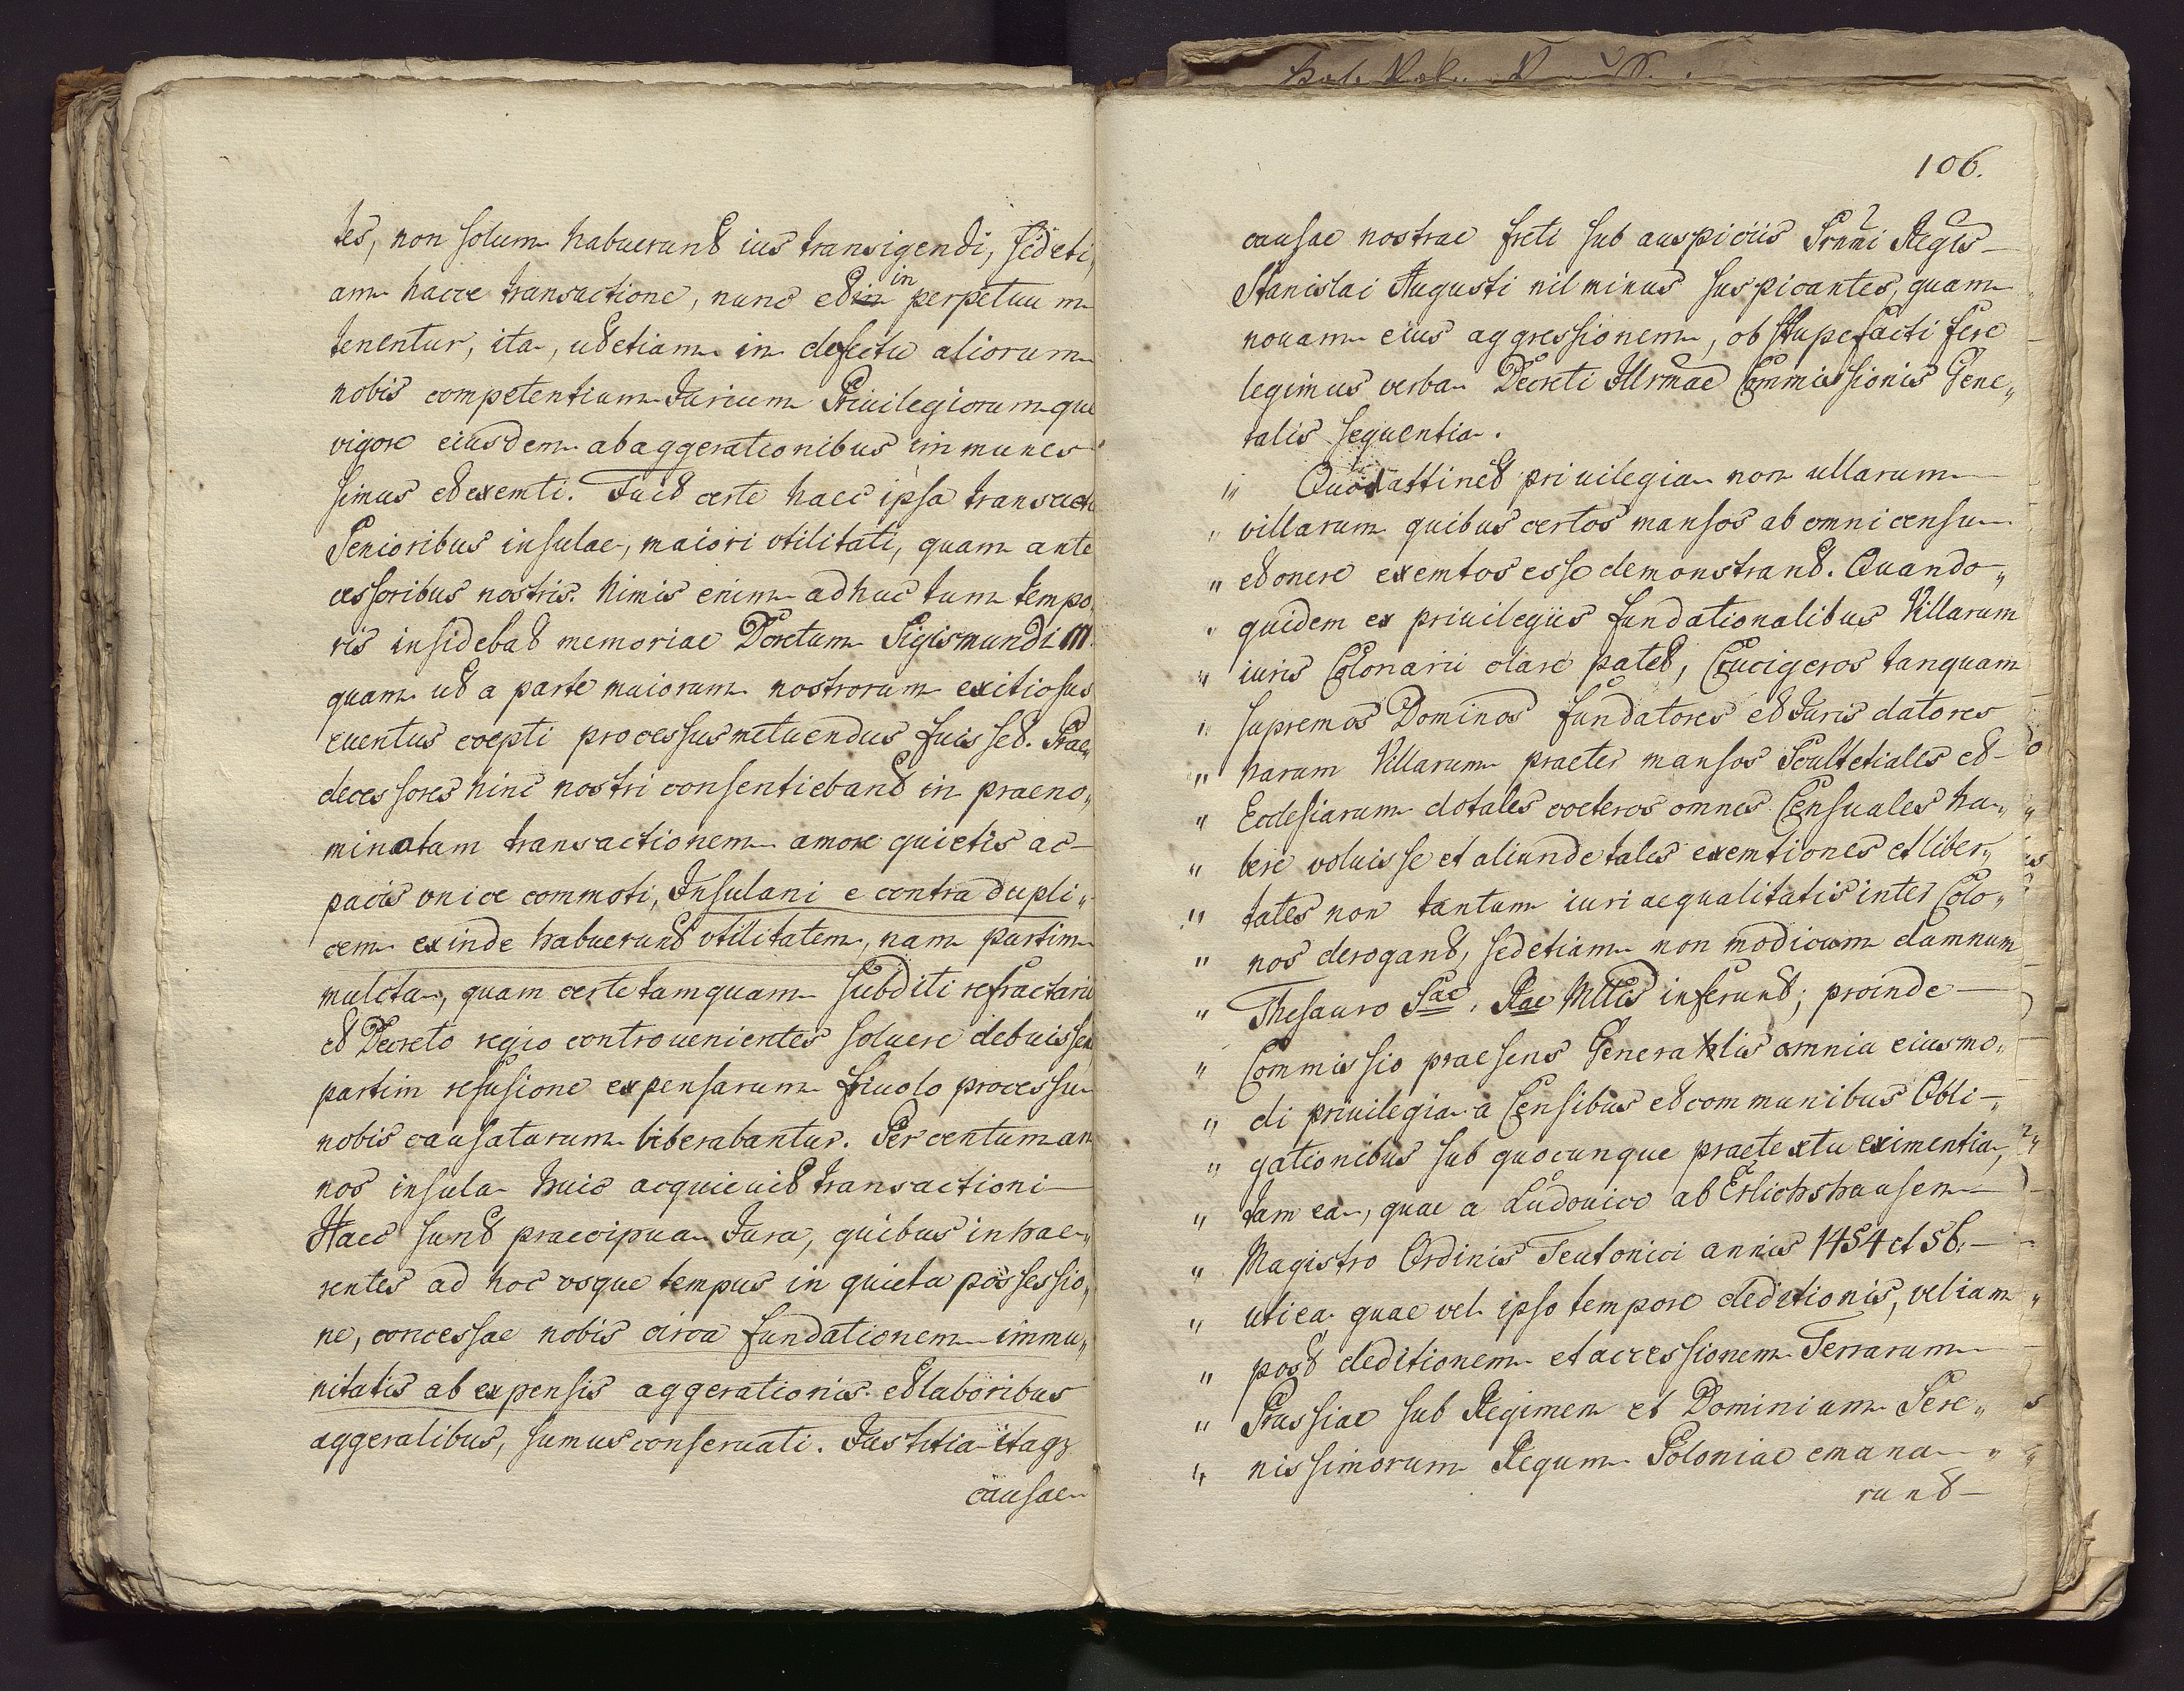 tes, non solum habuerunt ius transigendi, sed eti„
am hacce transactione, nunc et in in perpetuum
tenentur, ita, ut etiam in defectu aliorum
nobis competentium Jurium Privilegiorumque
vigore eiusdem ab aggerationibus immunes
simus et exemti. Fuit certe haec ipsa transactio
Senioribus insulae, maiori utilitati, quam ante
cessoribus nostris. Nimis enim adhuc tum tempo„
ris insidebat memoriae Decretum Sigismundi III.
quam ut a parte maiorum nostrorum exitiosus
euentus coepti processus metuendus fuisset. Prae„
decessores hinc nostri consentiebant in praeno„
minatam transactionem amore quietis ac
pacis unice commoti, Insulani e contra dupli„
cem exinde habuerunt utilitatem, nam partim
mulcta, quam certe tamquam subditi refractarii
et Decreto regio controuenientes soluere debuissent
partim refusione expensarum friuolo processu
nobis causatarum liberabantur. Per centum an
nos insula huic acquieuit transactioni
Haec sunt praecipua Jura, quibus inhae„
rentes ad hoc usque tempus in quieta possessio„
ne, concessae nobis circa fundationem immu„
nitatis ab expensis aggerationis et laboribus
aggeralibus, sumus conseruati. Justitia itaq3
causae
106.
causae nostrae freti sub auspiciis Srnmi Regis
Stanislai Augusti nil minus suspicantes, quam
nouam eius aggressionem, obstupefacti fere
legimus verba Decreti Illrmae Commissionis Gene„
ralis sequentia.
„ Quod attinet priuilegia non ullarum
„ villarum quibus certos mansos ab omni censu
„ et onere exemtos esse demonstrant. Quando„
„ quidem ex priuilegiis fundationalibus Villarum
„ iuris Colonarii clare patet, Crucigeros tanquam
„ supremos Dominos fundatores et Juris datores
„ harum Villarum praeter mansos Scultetiales et
„ Ecclesiarum dotales coeteros omnes Censuales ha„
„ bere voluisse et aliunde tales exemtiones et liber„
„ tates non tantum iuri aequalitatis inter Colo„
„ nos derogant, sed etiam non modicum damnum
„ Thesauro Sae. Rae Mttis inferunt; proinde
„ Commissio praesens Generahlis omnia eiusmo„
„ di priuilegia a Censibus et communibus Obli„
„ gationibus sub quocunque praetextu eximentia,
„ tam ea, quae a Ludouico ab Erlichshausen
„ Magistro Ordinis Teutonici annis 1454 et 56.
„ uti ea quae vel ipso tempore deditionis, vel iam
„ post deditionem et accessionem Terrarum
„ Prussiae sub Regimen et Dominium Sere„
„ nissimorum Regum Poloniae emana„
runt